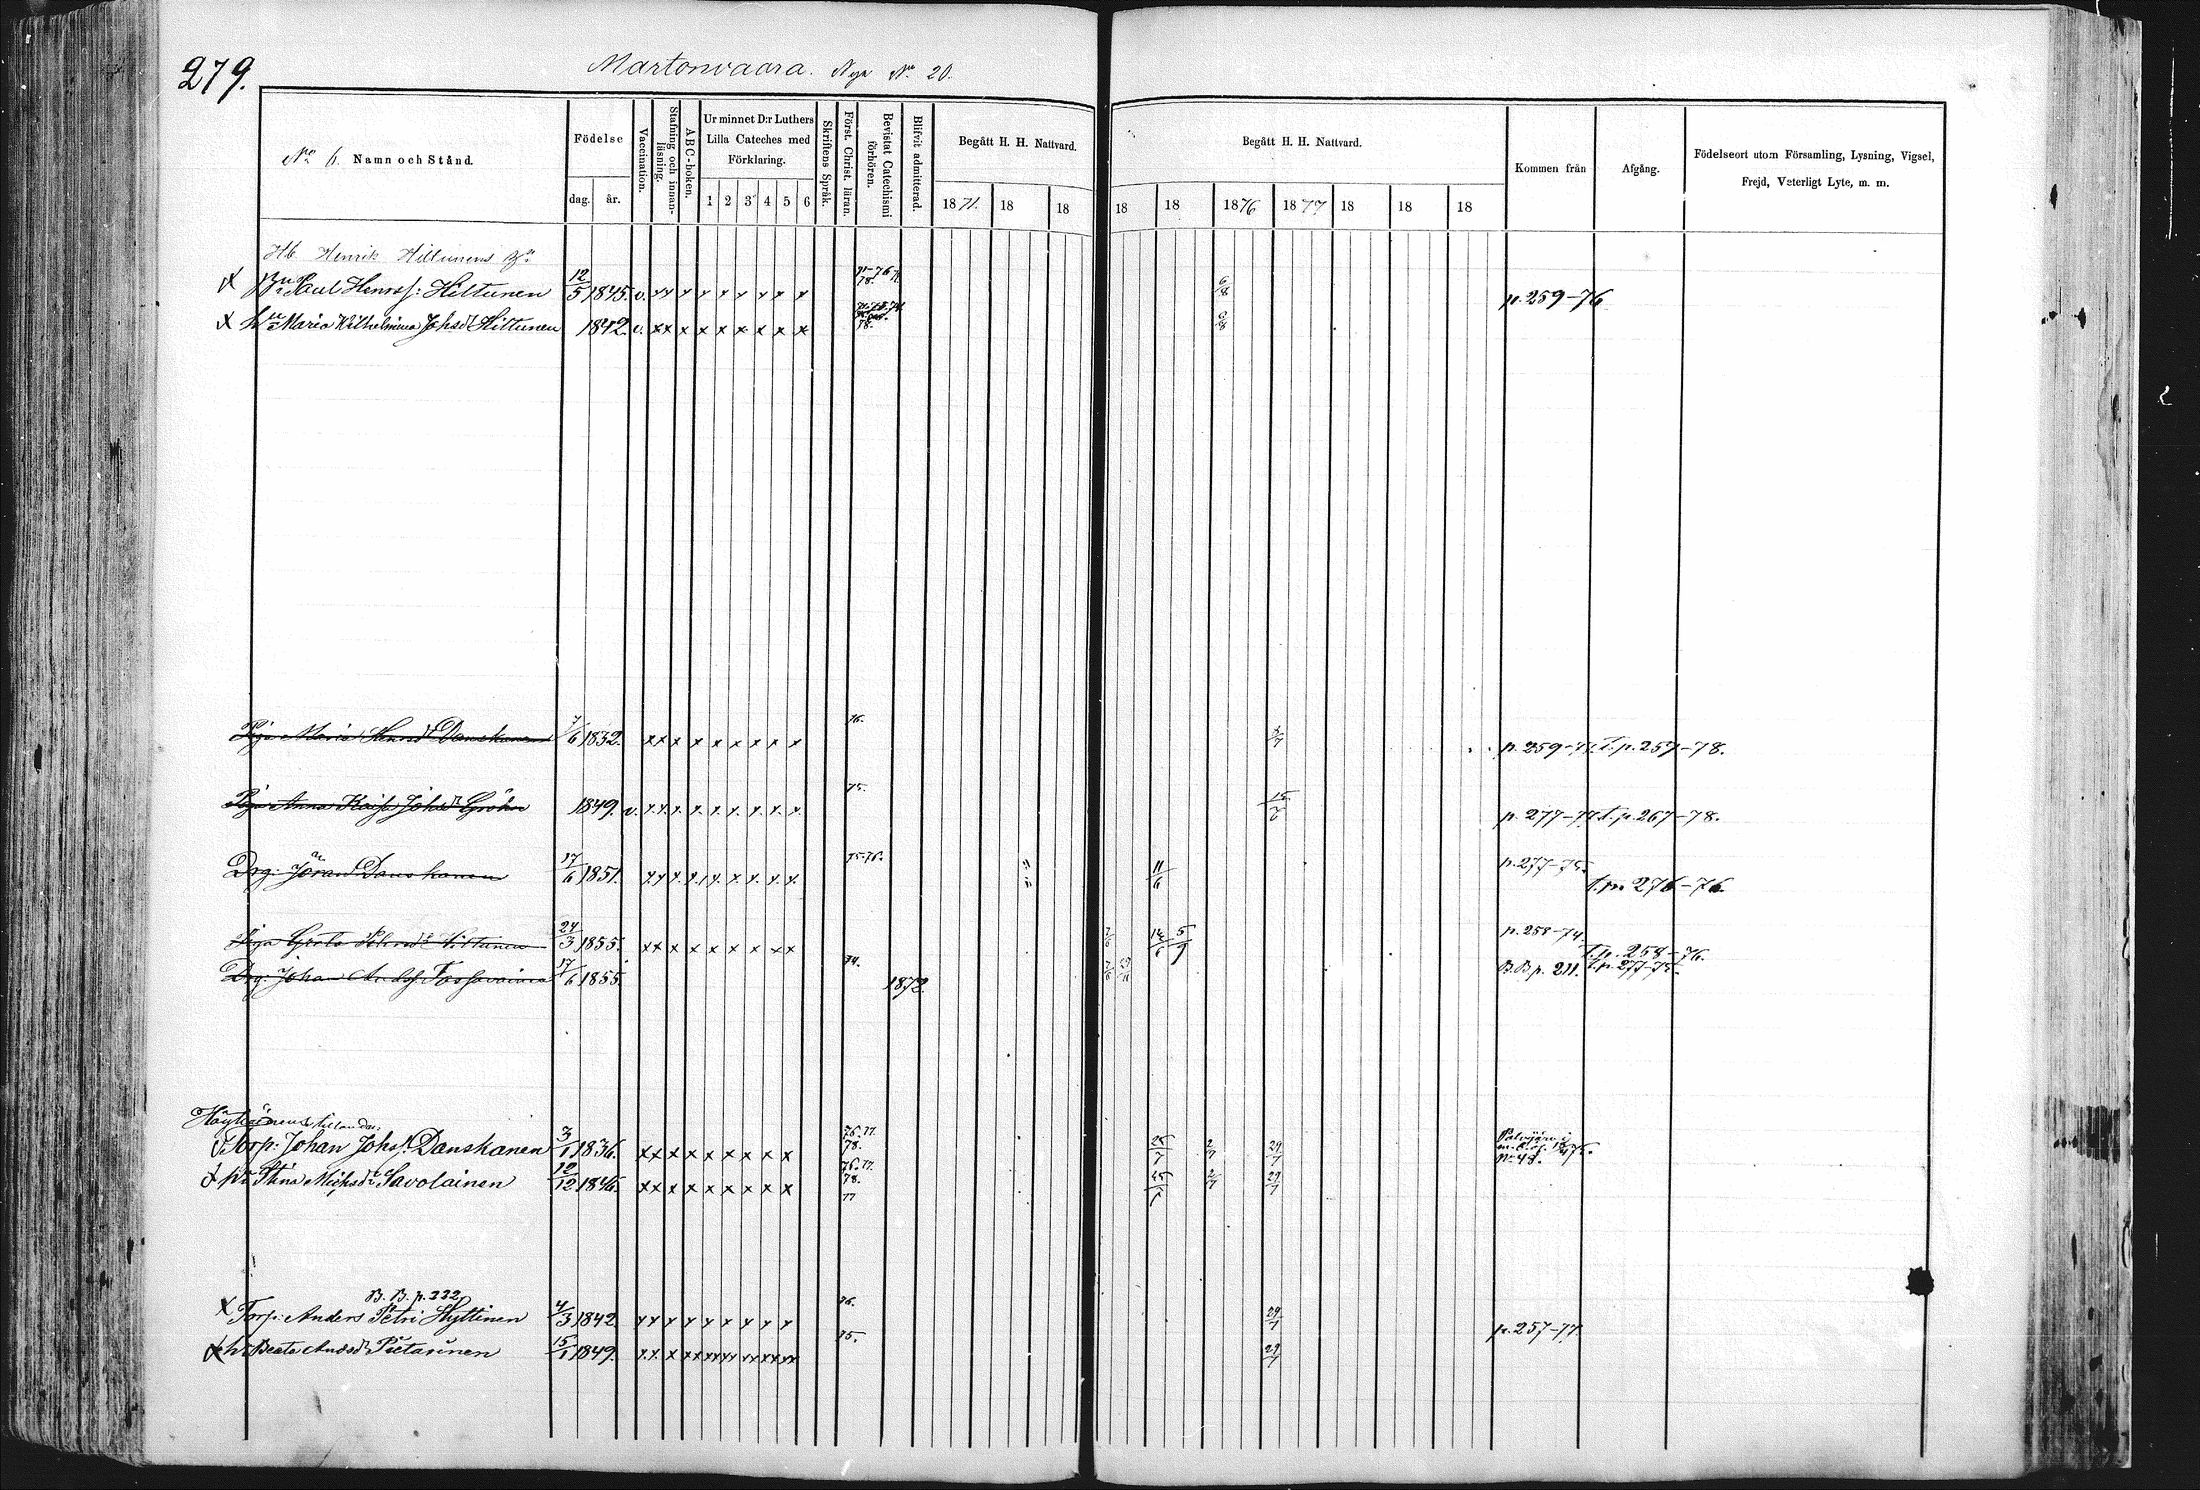 279.
Martonvaara. Nya No 20.
No 6. Namn och Stånd.
Födelse
dag. år.
Vaccination.
Stafning och innanläsning.
ABC-boken.
Ur minnet D:r Luthers Lilla Cateches med Förklaring.
1 2 3 4 5 6
Skriftens Språk.
Först. Christ. läran.
Bevistat Catechismi förhören.
Blifvit admitterad.
Begått H. H. Nattvard.
1871. 18 18
Begått H. H. Nattvard.
18 18 1876 1877 18 18 18
Kommen från
Afgång.
Födelseort utom Församling, Lysning, Vigsel, Frejd, Veterligt Lyte, m. m.
Hb Henrik Hiltunens
Paul Henrss: Hiltunen 12/5 1845. v. x x x x x x x x x 78. 6/8 p. 259-76
Maria Wilhelmina Johsdr Hiltunen 1842. v. x x x x x x x x x 78. 6/8
Piga Maria Henrsdr Danskanen 7/6 1832. x x x x x x x x x 76. p. 259-77. t. p. 259-78.
Piga Anna Kaisa Johsdr Gröhn 1849. v. x x x x x x x x x 75. p. 277-77. t. p. 267-78.
Drg: Jöran Danskanen 17/6 1851. x x x x x x x x x 75-76. 11/6 p. 277-75. t. p. 276-76.
Piga Greta Hiltunen 24/3 1855. x x x x x x x x x p. 258-74. t. p. 258-76.
Drg: Johan Tossavainen 17/6 1855. 74. 1872. B.B. p. 211. t. p. 277-75.
Torp: Johan Johss: Danskanen 3/1 1836. x x x x x x x x x 76. 77. 78. 25/7 2/7 29/7 No 48.
Stina Michsdr Savolainen 12/12 1846. x x x x x x x x x 76. 77. 78. 77 25/7 2/7 29/7
B. B. p. 232
Torp: Anders Petri Hyttinen 4/3 1842 x x x x x x x x x 76. 29/7 p. 257-77.
Beata Andsdr Pietarinen 15/1 1849. x x x xx xx xx xx xx xx 75. 29/7